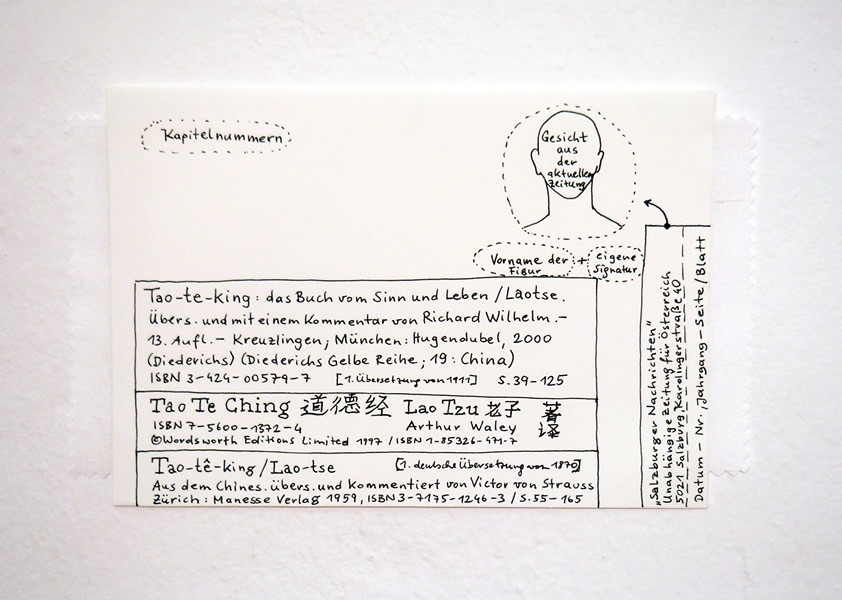 Kapitelnummern
Gesicht
aus
der
aktuellen
Zeitung
Vorname der + eigene
Figur Signatur
Tao-te-king: das Buch vom Sinn und Leben / Laotse.
Übers. und mit einem Kommentar von Richard Wilhelm.-
13. Aufl. - Kreuzlingen; München: Hugendubel, 2000
(Diederichs) (Diederichs Gelbe Reihe; 19: China)
ISBN 3-424-00579-7 [1. Übersetzung von 1911] S. 39-125
Tao Te Ching 道德经 Lao Tzu 老子 著
ISBN 7-5600-1372-4 Arthur Waley 译
©Wordsworth Editions Limited 1997 / ISBN 1-85326-471-7
Tao-tê-king / Lao-tse [1. deutsche Übersetzung von 1870]
Aus dem Chines. übers. und kommentiert von Victor von Strauss
Zürich: Manesse Verlag 1959, ISBN 3-7175-1246-3 / S. 55-165
„Salzburger Nachrichten"
Unabhängige Zeitung für Österreich
5021 Salzburg, Karolingerstraße 40
Datum - Nr., Jahrgang - Seite / Blatt